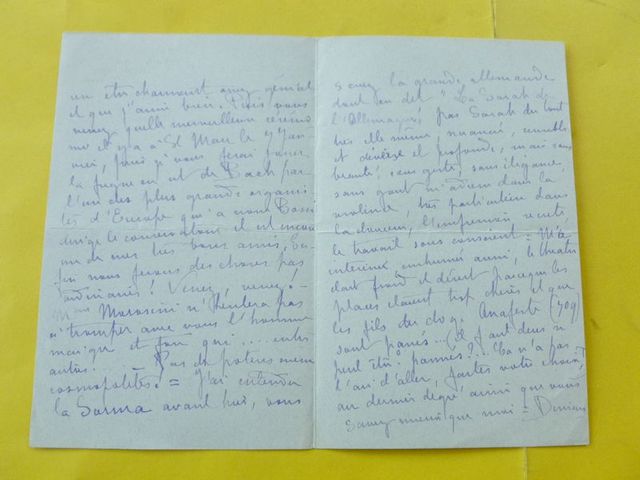 un être charmant assez génial
et que j'aime bien. Puis vous
verrez quelle merveilleuse cérémo
nie il y a à St Marc le
moi, puis je vous ferai jouer
la fugue en ut de Bach par
l'un des plus grands organis
tes d'Europe qui a nom Bossi
dirige le conservatoire il est encore
un de mes très bons amis. En
fin nous ferons des choses pas
ordinaires! Venez, venez!
Mme Morosini n'hésitera pas
à tromper avec vous l'homme
qui et fou qui.... entre
autres. — Pas de potères même
cosmopolites. = J'ai entendu
la Sorma avant hier, vous
savez la grande allemande
dont on dit "La Sarah de
l'Allemagne, pas Sarah du tout
très elle même, nuancée, sensible
et et profonde, mais sans
beauté, sans geste, sans élégance,
sans goût m'a dans la
violence, très particulière dans
la douceur, l'imprévu
le travail sous conscient =
intérieur aussi, le théâtre
était froid et désert parceque les
places étaient trop chères et que
les fils du doge Anafeste (709)
sont panés.. (il faut deux n
peut être? pannés?... Ça n'a pas
l'air d'aller, faites votre choix)
au dernier degré ainsi que vous
savez mieux que moi =